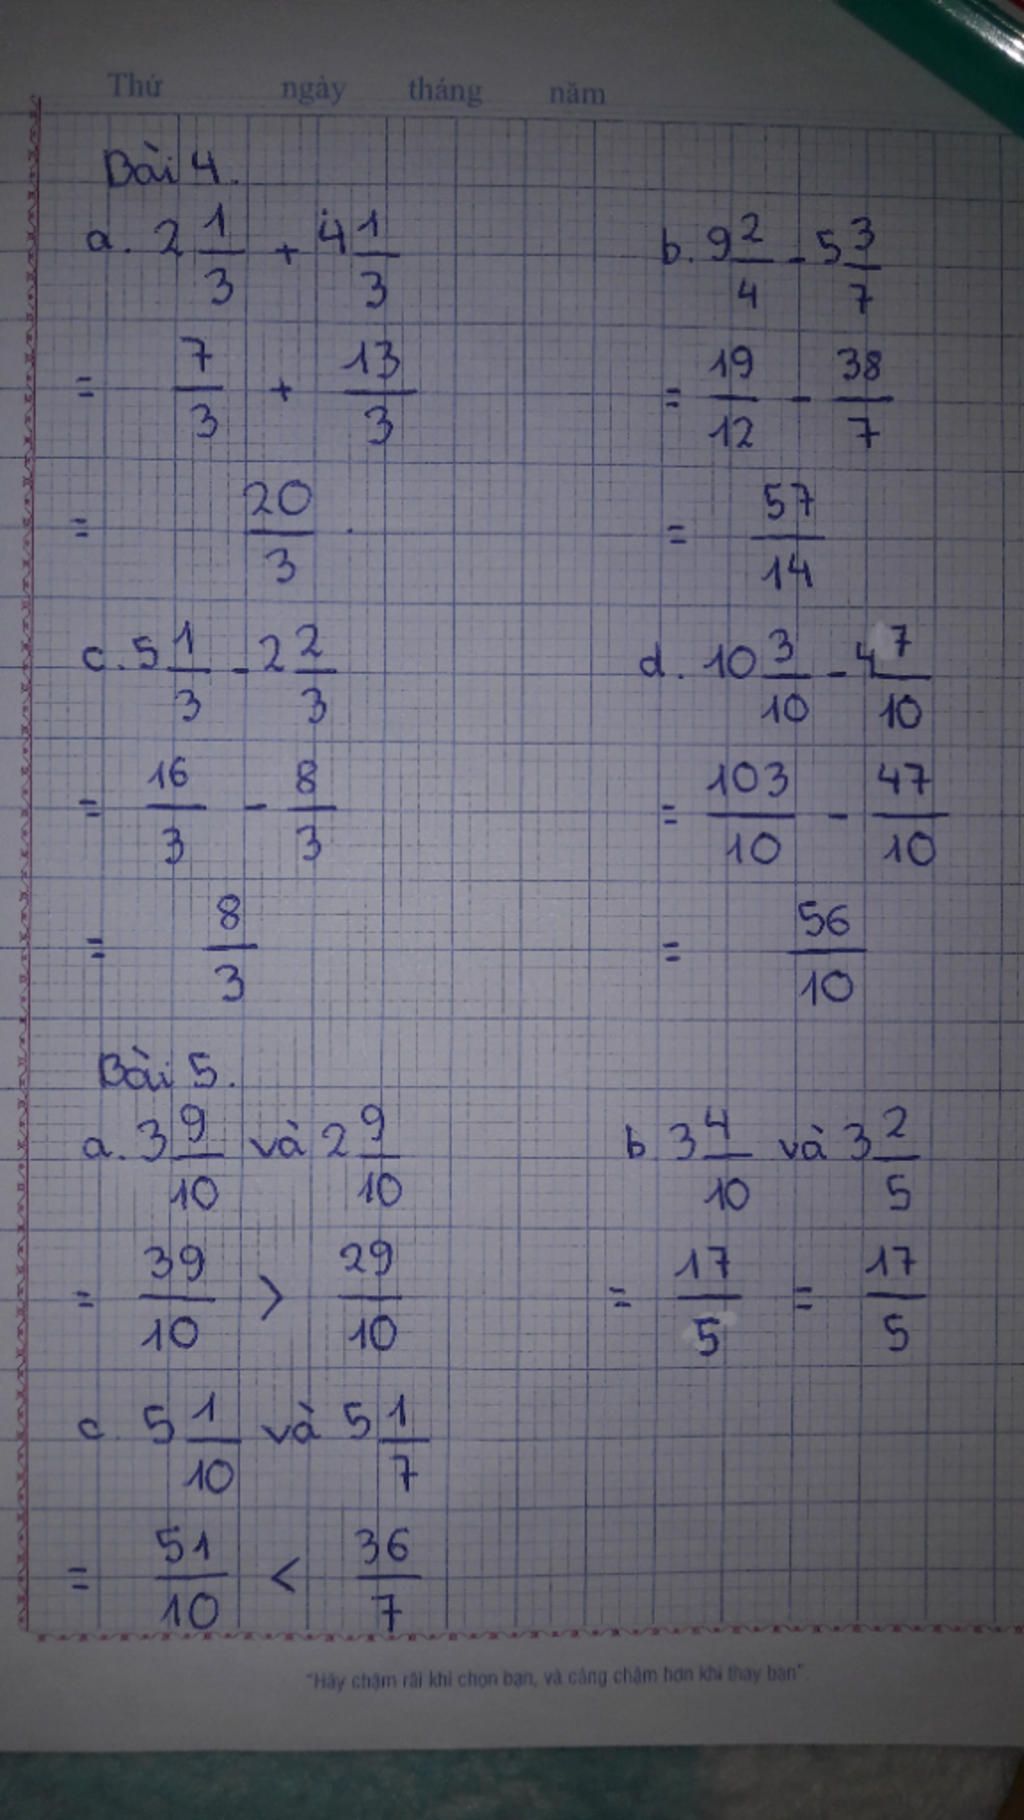 Thứ ngày tháng năm
Bài 4.
a. 2 1/3 + 4 1/3
= 7/3 + 13/3
= 20/3 .
b. 9 2/4 - 5 3/7
= 19/12 - 38/7
= 57/14
c. 5 1/3 - 2 2/3
= 16/3 - 8/3
= 8/3
d. 10 3/10 - 4 7/10
= 103/10 - 47/10
= 56/10
Bài 5.
a. 3 9/10 và 2 9/10
= 39/10 > 29/10
b. 3 4/10 và 3 2/5
= 17/5 = 17/5
c. 5 1/10 và 5 1/7
= 51/10 < 36/7
"Hãy chậm rãi khi chọn bạn, và càng chậm hơn khi thay bạn".